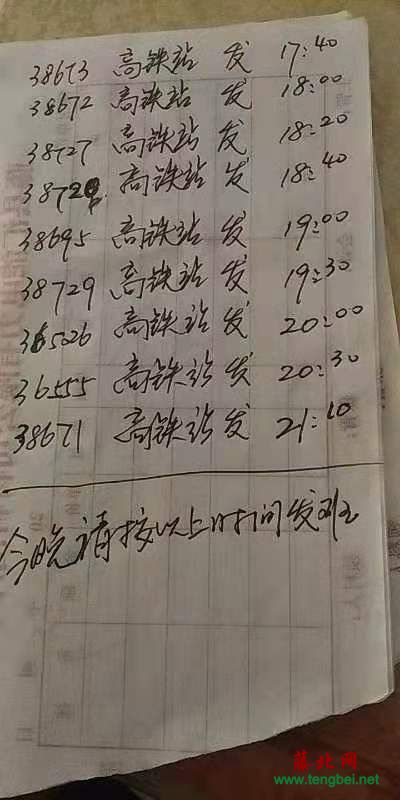 38673 高铁站 发 17:40
38672 高铁站 发 18:00
38727 高铁站 发 18:20
高铁站 发 18:40
38695 高铁站 发 19:00
38729 高铁站 发 19:30
高铁站 发 20:00
36555 高铁站 发 20:30
38671 高铁站 发 21:10
今晚请按以上时间发班
滕北网
www.tengbei.net